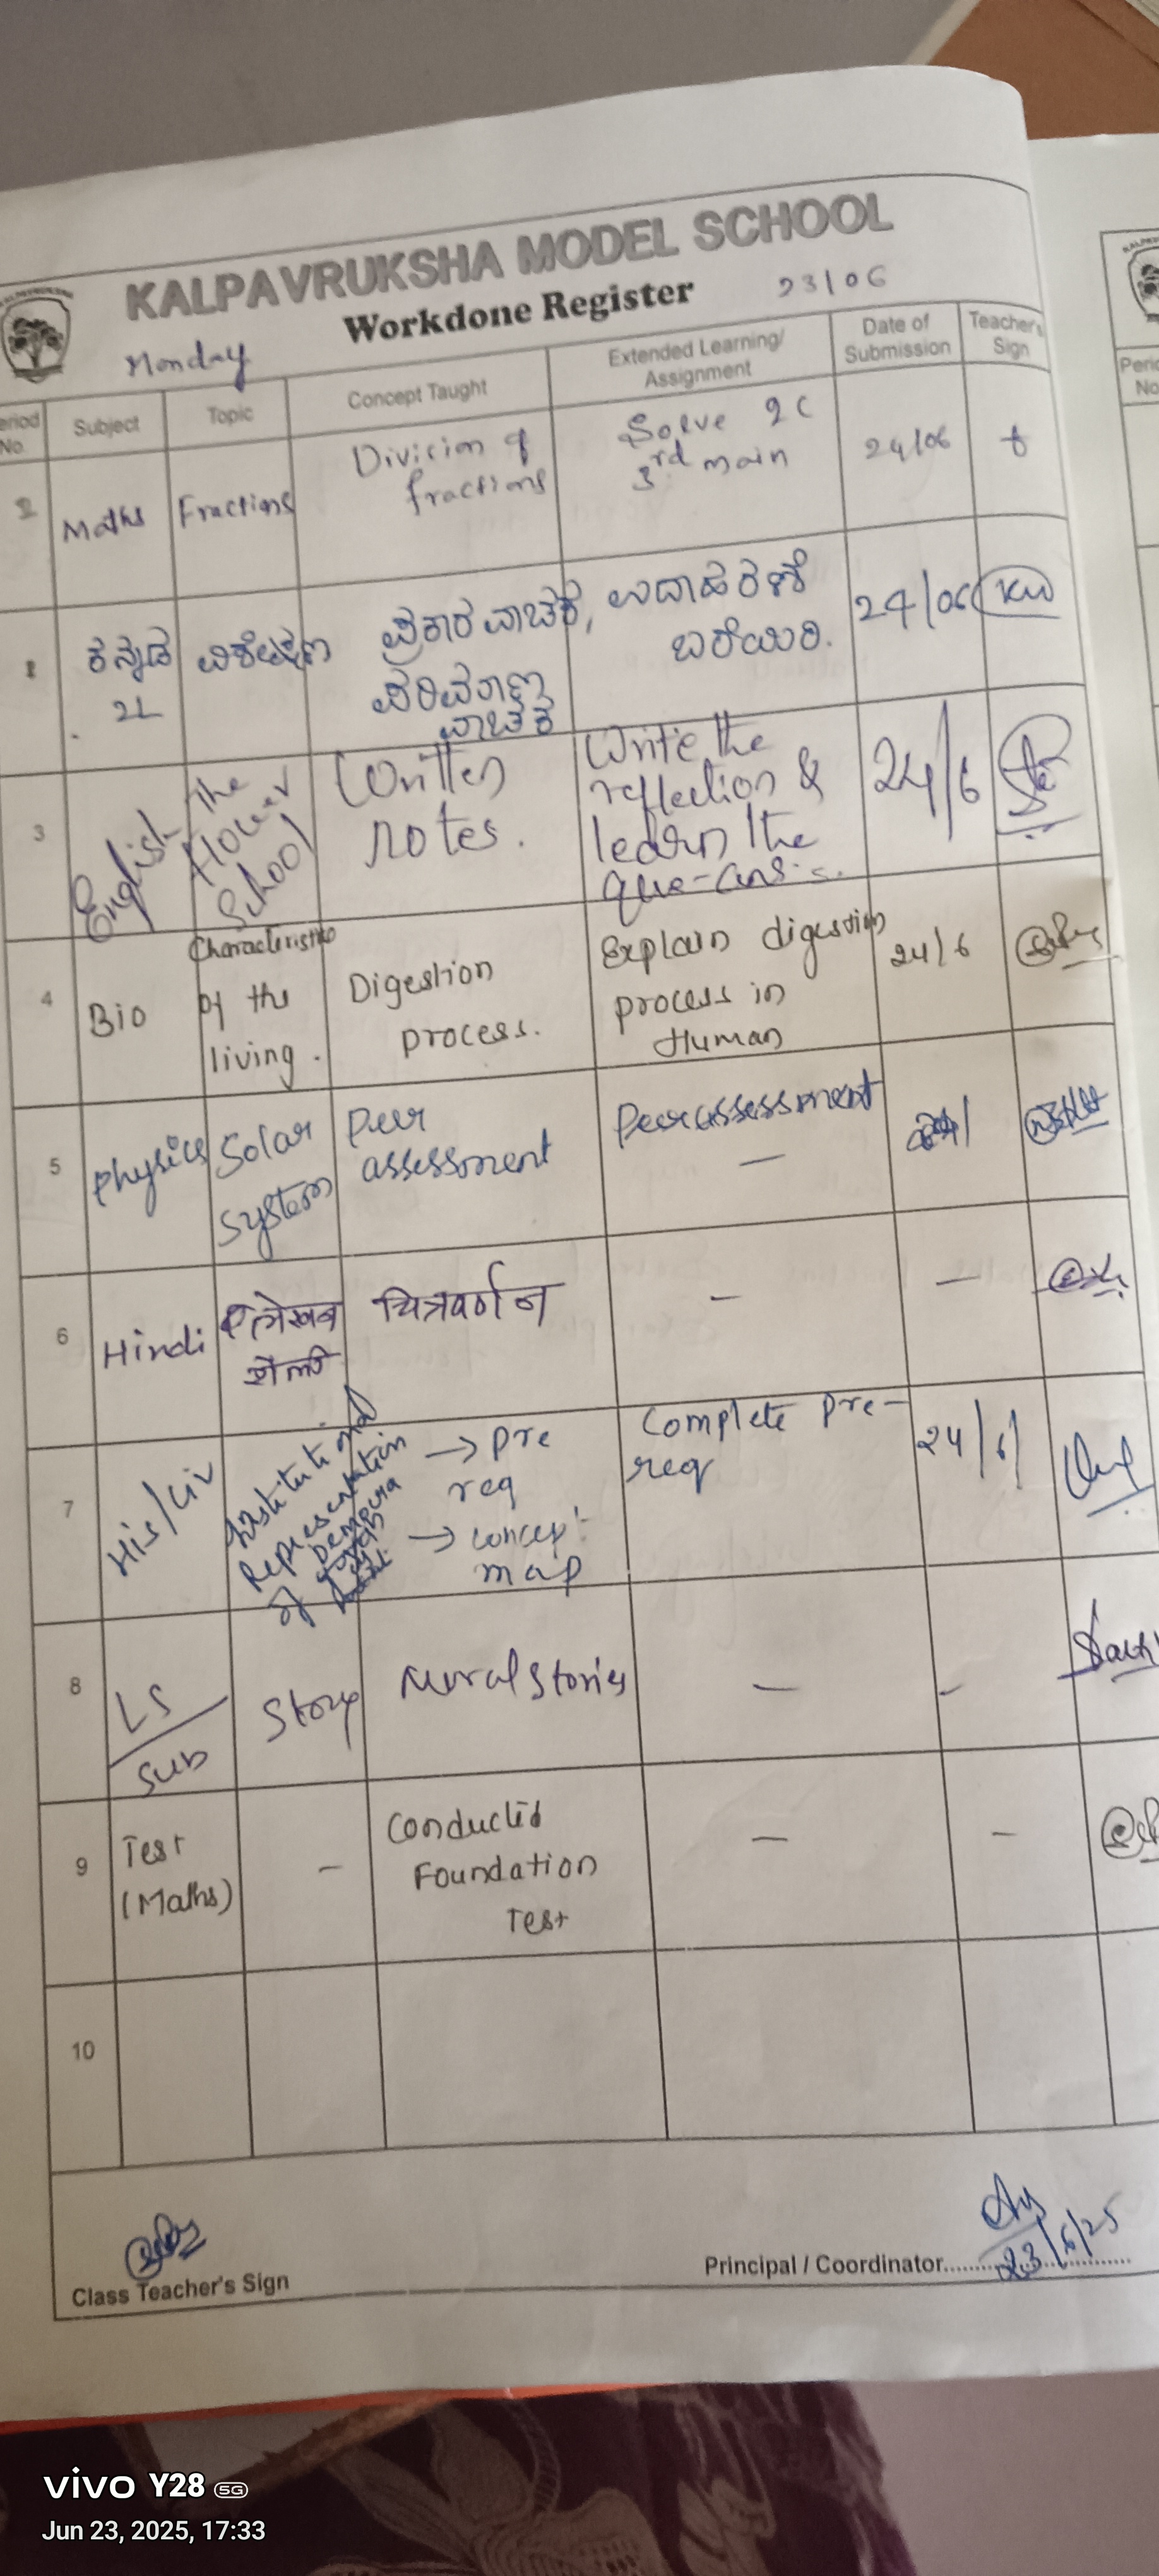 KALPAVRUKSHA MODEL SCHOOL
Workdone Register
23/06
Monday
Subject
Topic
Concept Taught
Extended Learning/
Assignment
Date of
Submission
Teacher's
Sign
No.
2
Maths
Fractions
Division of
fractions
Solve 2C
3rd main
24/06
1
ಕನ್ನಡ
2L
ವಿಶೇಷಣ
ಪ್ರಕಾರ ವಾಚಕ,
ಪರಿಮಾಣ
ವಾಚಕ
ಉದಾಹರಣೆ
ಬರೆಯಿರಿ.
24/06
3
English
The
Flower
School
Written
notes.
Write the
reflection &
learn the
que-ans.
24/6
4
Bio
Characteristic
of the
living.
Digestion
process.
Explain digestion
process in
Human
24/6
5
Physics
Solar
system
Peer
assessment
Peer assessment
—
6
Hindi
शैली
चित्रवर्णन
—
—
7
His/Civ
Representation
of
→ Pre
req
→ concept
map
Complete Pre-
req
24/6/
8
LS
Sub
Story
Moral Stories
—
-
9
Test
(Maths)
—
Conducted
Foundation
Test
—
—
10
Class Teacher's Sign
Principal / Coordinator
23/6/25
vivo Y28 5G
Jun 23, 2025, 17:33